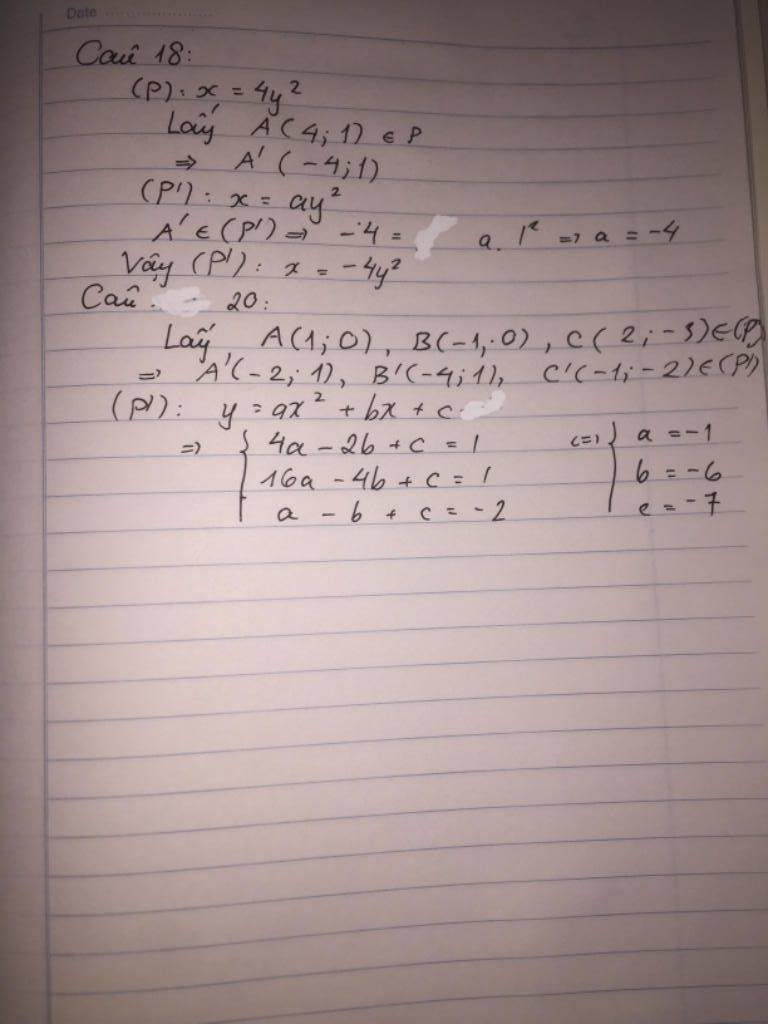 Date
Câu 18:
(P): x = 4y²
Lấy A(4;1) ∈ P
⇒ A'(-4;1)
(P'): x = ay²
A' ∈ (P') ⇒ -4 = a. 1² ⇒ a = -4
Vậy (P'): x = -4y²
Câu 20:
Lấy A(1;0), B(-1;0), C(2;-3)∈(P)
⇒ A'(-2;1), B'(-4;1), C'(-1;-2)∈(P')
(P'): y = ax² + bx + c
⇒ { 4a - 2b + c = 1 <=> { a = -1
16a - 4b + c = 1 b = -6
a - b + c = -2 c = -7